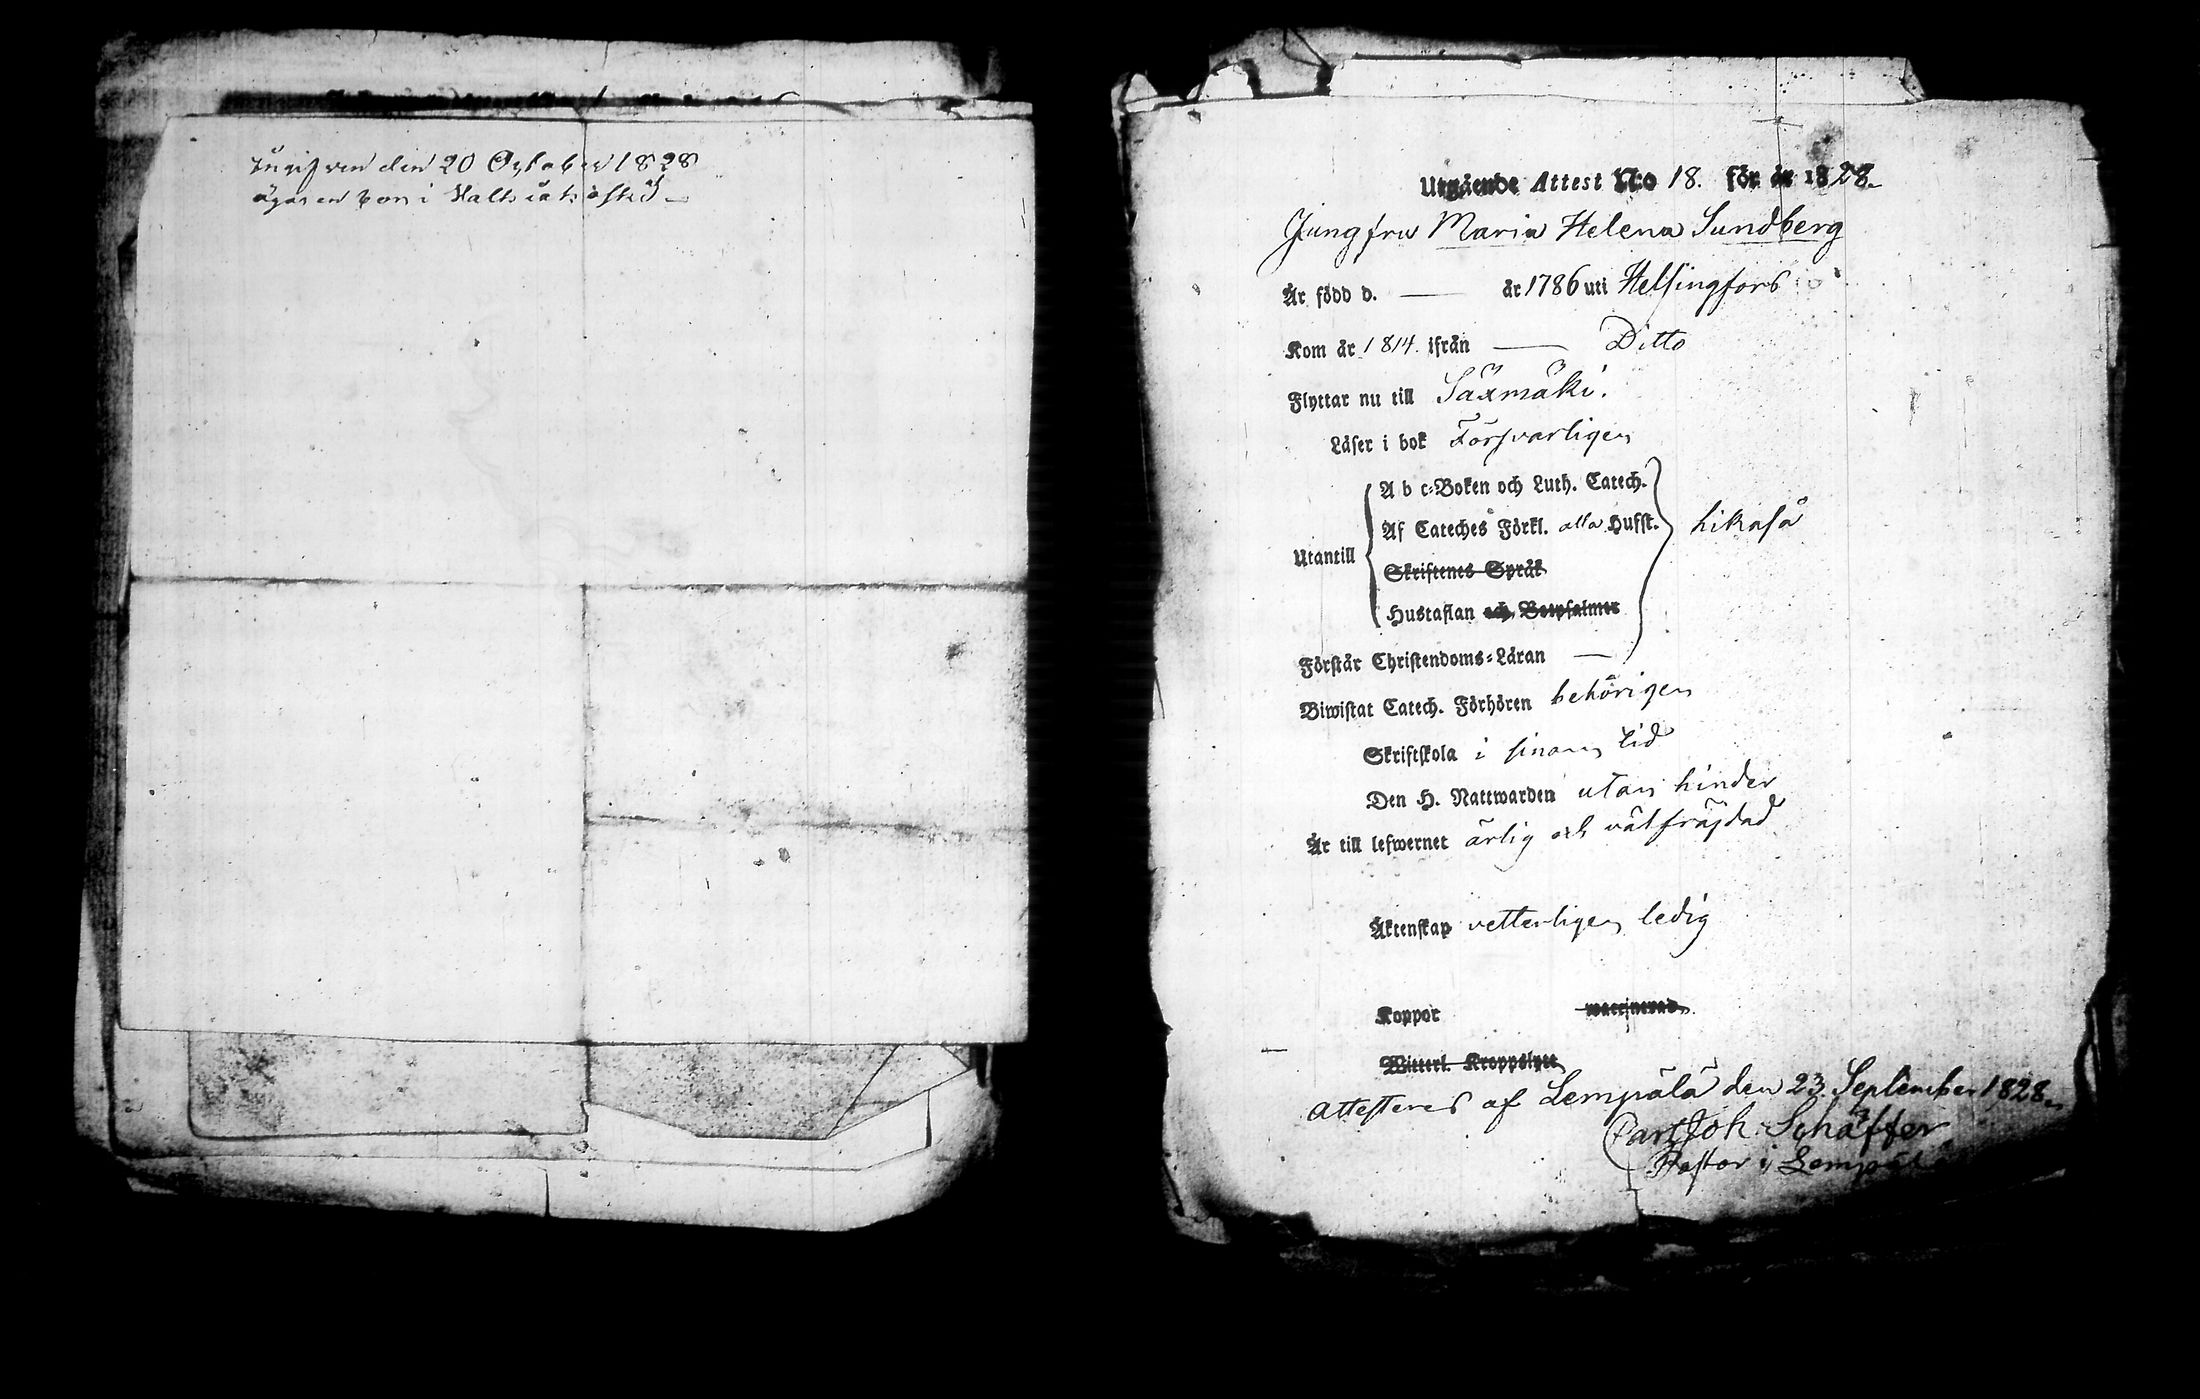 Ingifven den 20 October 1828
ägaren bor i
Utgående Attest N:o 18. för år 1828.
Jungfru Maria Helena Sundberg
Är född d. — år 1786 uti Helsingfors
Kom år 1814. ifrån — Ditto
Flyttar nu till Säxmäki.
Läser i bok Försvarligen
A b c-Boken och Luth. Catech.
Af Cateches Förkl. alla Hufst. likaså
Utantill
Skriftenes Språk
Hustaflan och Botpsalmer
Förstår Christendoms-Läran —
Biwistat Catech. Förhören behörigen
Skriftskola i sinom tid
Den H. Nattwarden utan hinder
Är till lefwernet ärlig och välfräjdad
Äktenskap vetterligen ledig
Koppor waccinerad
Witterl. Kroppslyte
Attesteras af Lempälä den 23. September 1828.
Carl Joh. Schäffer
Pastor i Lempälä